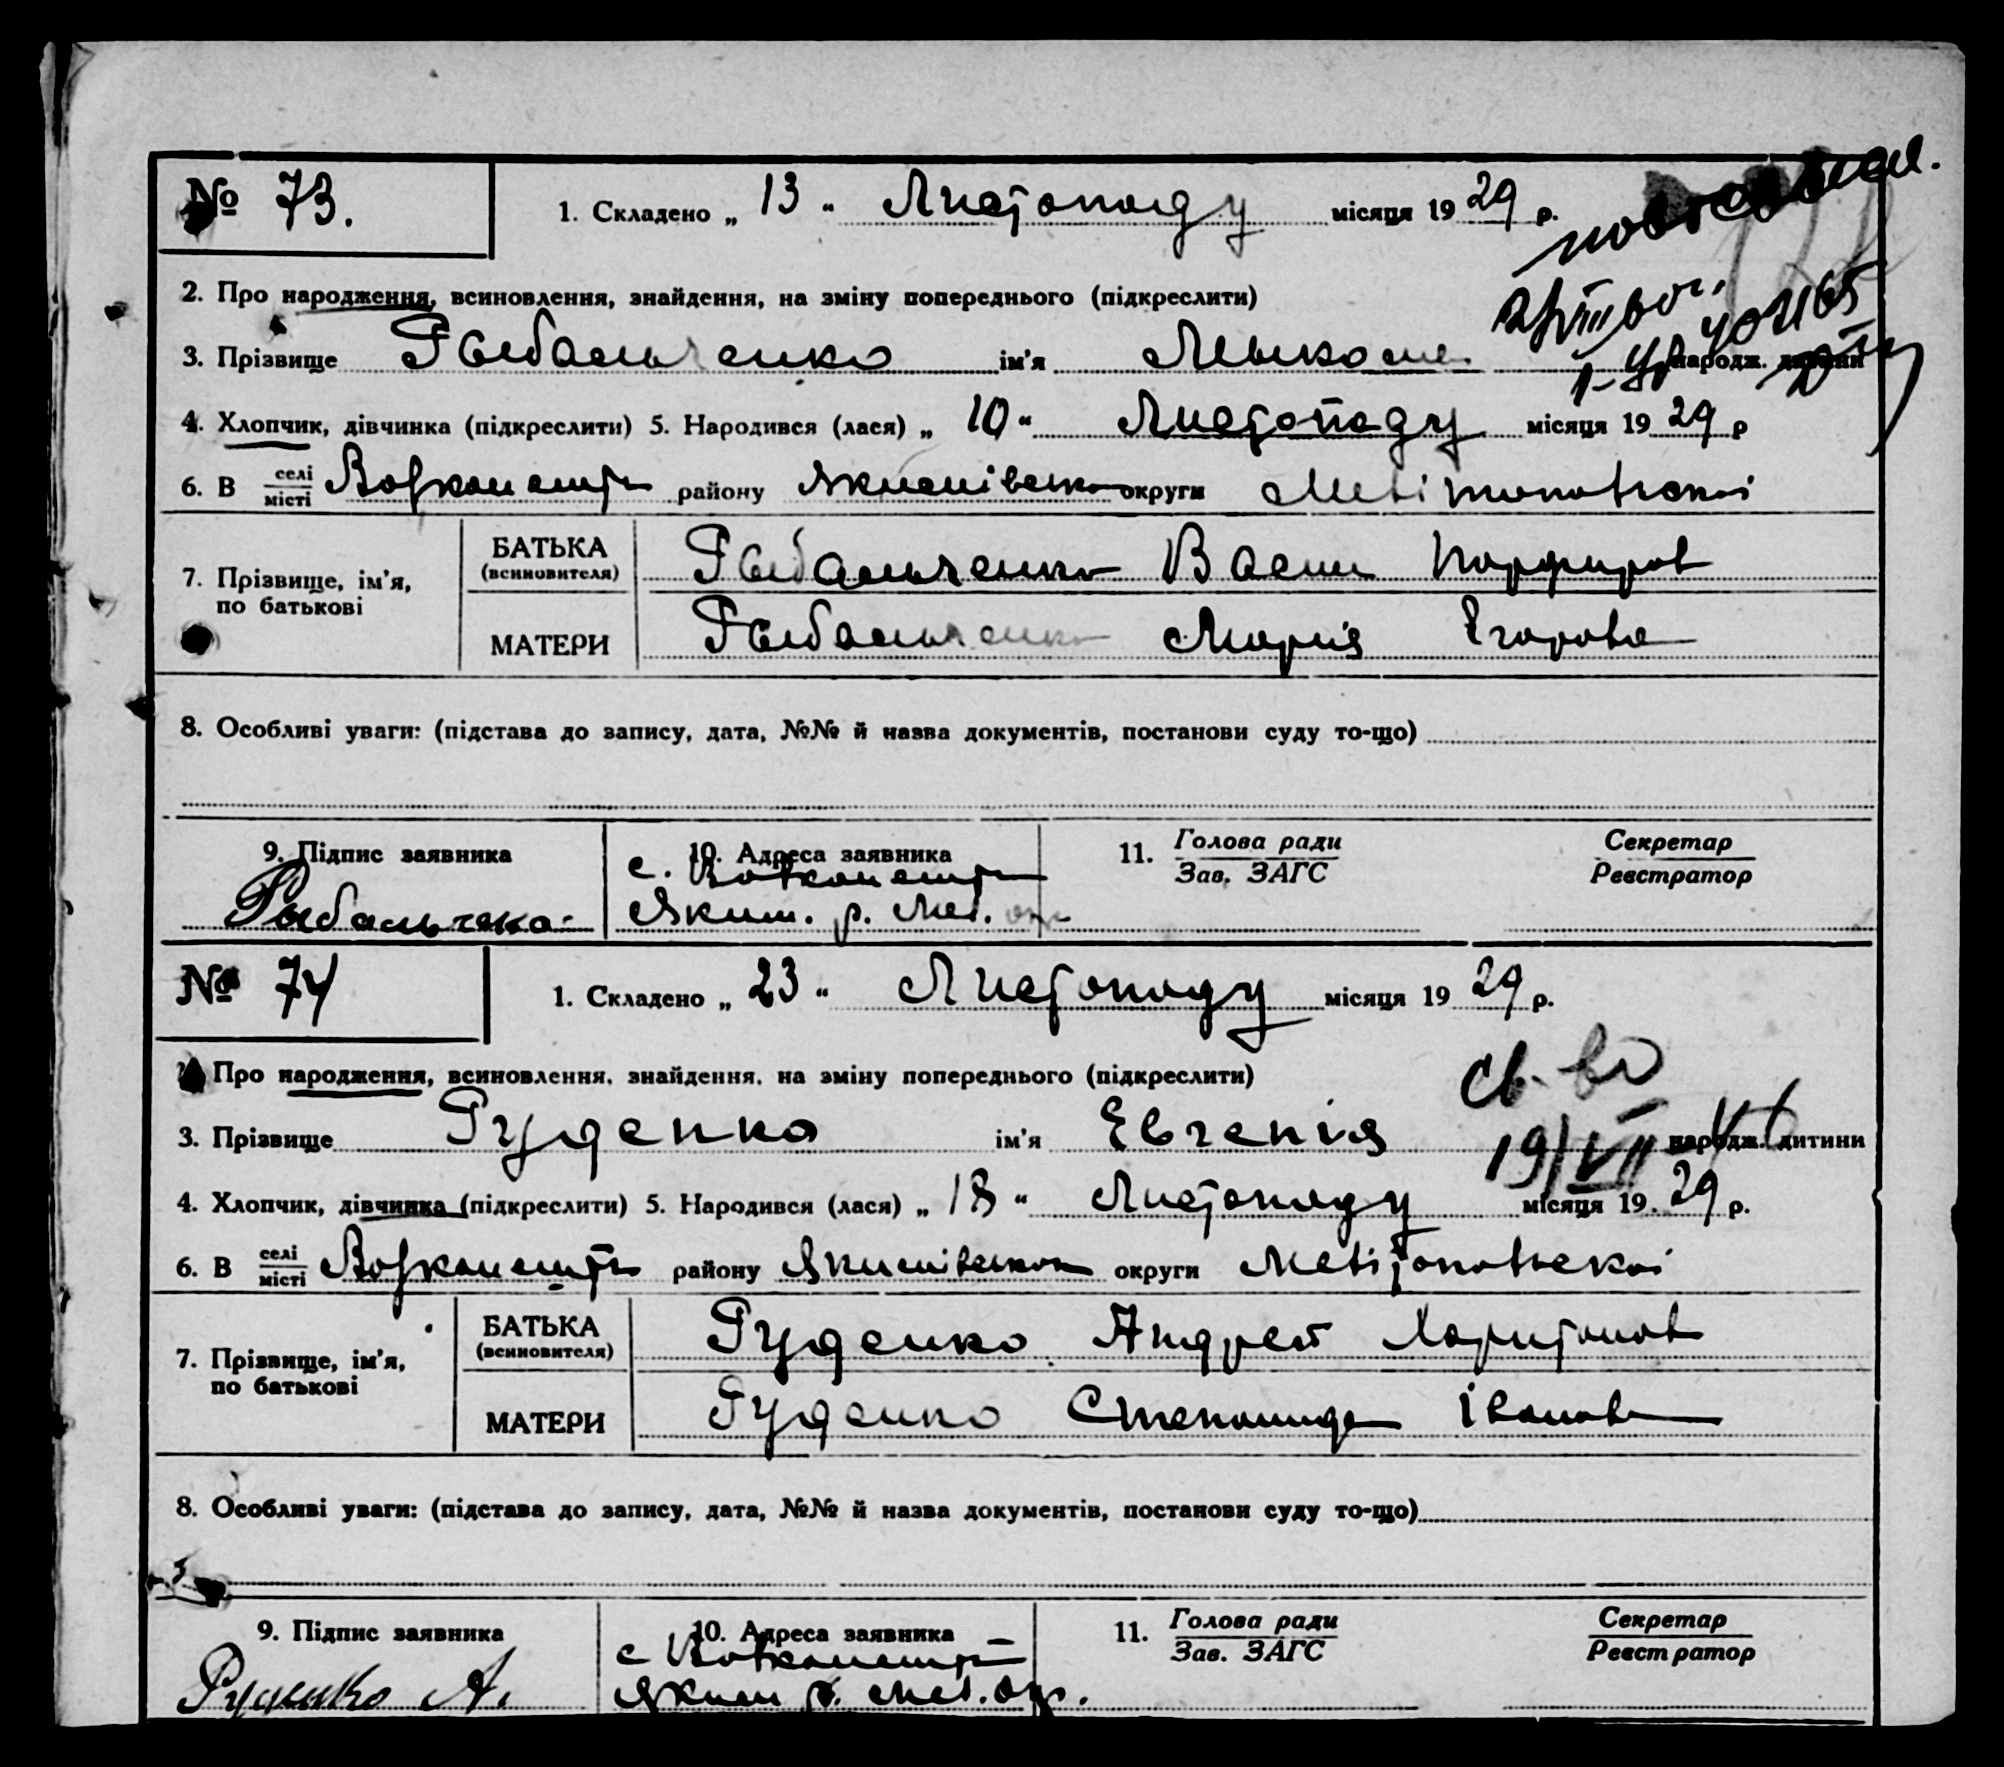 № 73. 1. Складено „ 13 “ Листопаду місяця 1929 р.
2. Про народження, всиновлення, знайдення, на зміну попереднього (підкреслити)
3. Прізвище Рыбальченко ім'я народж. дитини
4. Хлопчик, дівчинка (підкреслити) 5. Народився (лася) „ 10 “ Листопаду місяця 1929 р
6. В селі місті району Якимівськ округи Мелітопольскоі
7. Прізвище, ім'я, по батькові
БАТЬКА (всиновителя) Рыбальченко Васил Порфиров
МАТЕРИ Рыбальченко Марія Егорова
8. Особливі уваги: (підстава до запису, дата, №№ й назва документів, постанови суду то-що)
9. Підпис заявника 10. Адреса заявника 11. Голова ради Секретар
Зав. ЗАГС Реєстратор
с.
Яким. р. Мел.
№ 74 1. Складено „ 23 “ Листопаду місяця 1929 р.
Про народження, всиновлення, знайдення, на зміну попереднього (підкреслити)
св-во
3. Прізвище Руденко ім'я Евгенія народж. дитини
19/VII
4. Хлопчик, дівчинка (підкреслити) 5. Народився (лася) „ 18 “ Листопаду місяця 19.29 р.
6. В селі місті району Якимівськ округи Мелітопольскоі
7. Прізвище, ім'я, по батькові
БАТЬКА (всиновителя) Руденко Андрей Харитонов
МАТЕРИ Руденко Степанида Іванов
8. Особливі уваги: (підстава до запису, дата, №№ й назва документів, постанови суду то-що)
9. Підпис заявника 10. Адреса заявника 11. Голова ради Секретар
Зав. ЗАГС Реєстратор
Руденко А. с
Яким р. Мел. Окр.